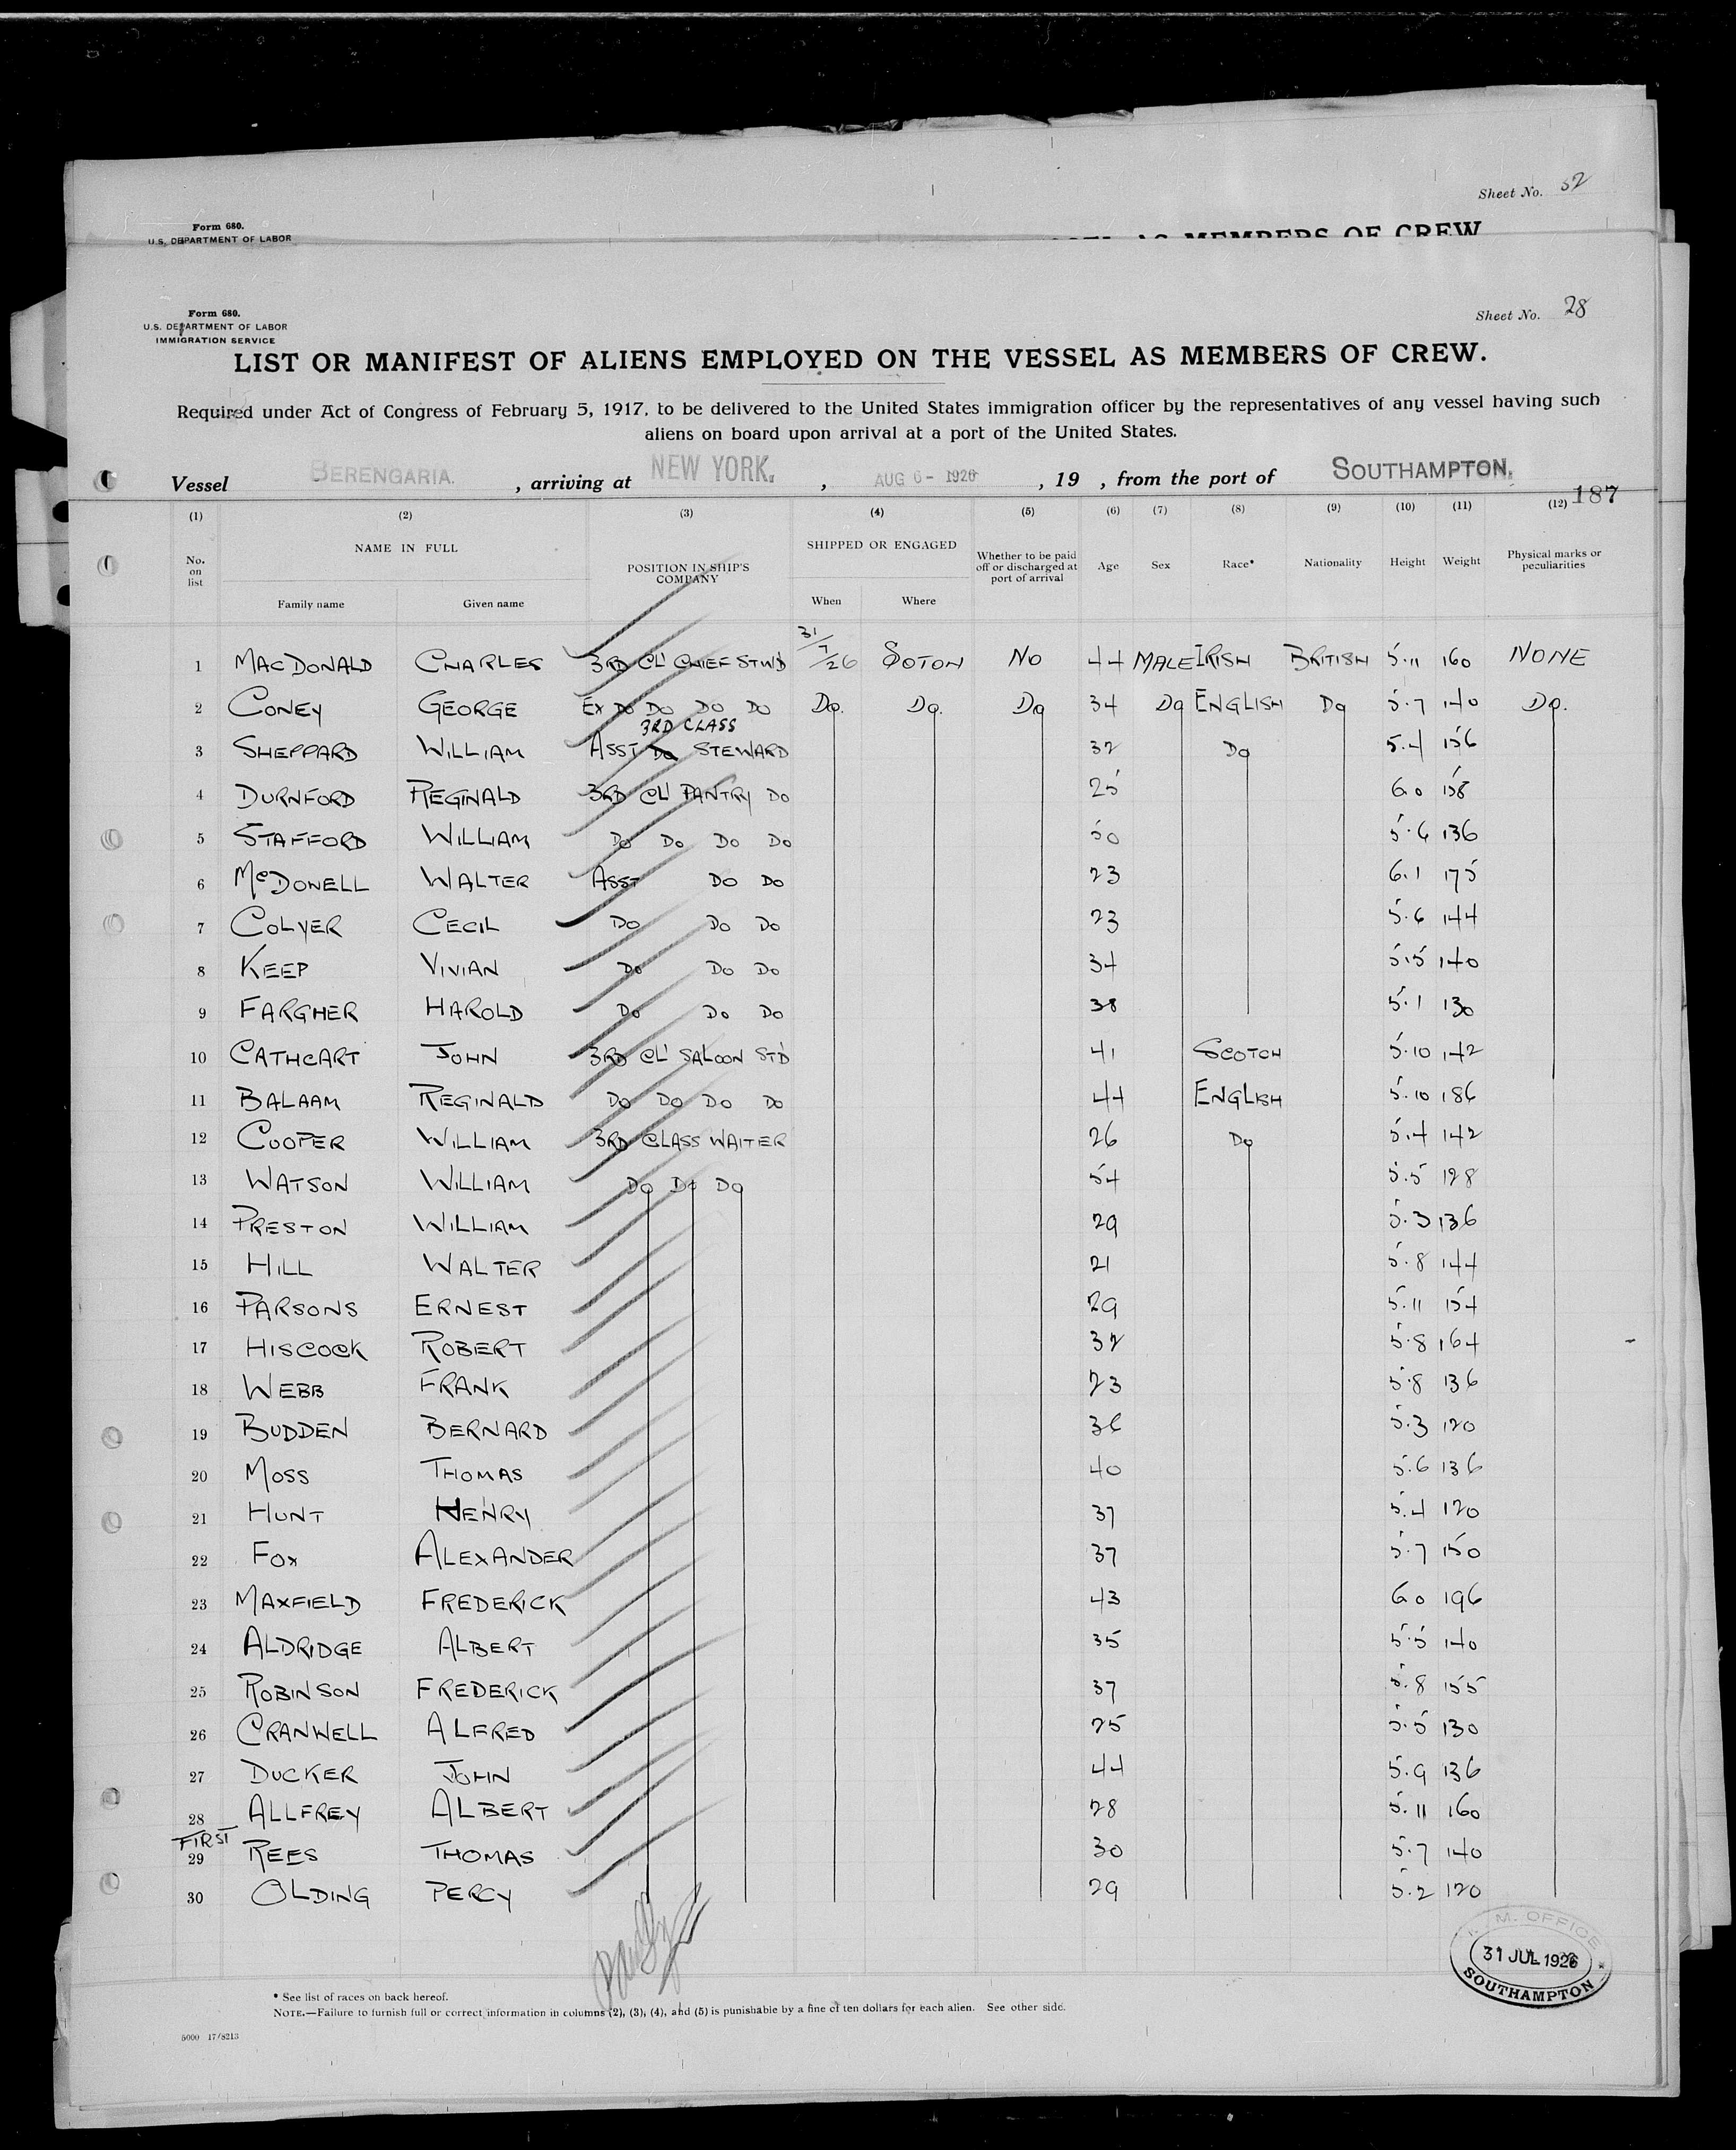 Sheet No. 32
Form 680.
U.S. DEPARTMENT OF LABOR
AS MEMBERS OF CREW
Form 680.
U.S. DEPARTMENT OF LABOR
IMMIGRATION SERVICE
Sheet No. 28
LIST OR MANIFEST OF ALIENS EMPLOYED ON THE VESSEL AS MEMBERS OF CREW.
Required under Act of Congress of February 5, 1917, to be delivered to the United States immigration officer by the representatives of any vessel having such
aliens on board upon arrival at a port of the United States.
Vessel BERENGARIA. , arriving at NEW YORK. , AUG 6 - 1926 , 19 , from the port of SOUTHAMPTON.
187
(1) (2) (3) (4) (5) (6) (7) (8) (9) (10) (11) (12)
No. on list NAME IN FULL POSITION IN SHIP'S COMPANY SHIPPED OR ENGAGED Whether to be paid off or discharged at port of arrival Age Sex Race* Nationality Height Weight Physical marks or peculiarities
Family name Given name When Where
1 MACDONALD CHARLES 3RD CL' CHIEF STWD 31/7/26 SOTON NO 44 MALE IRISH BRITISH 5.11 160 NONE
2 CONEY GEORGE EX DO DO DO DO DO. DO. DO 34 DO ENGLISH DO 5.7 140 DO.
3 SHEPPARD WILLIAM ASST 3RD CLASS STEWARD 32 DO 5.4 156
4 DURNFORD REGINALD 3RD CL' PANTRY DO 25 6.0 158
5 STAFFORD WILLIAM DO DO DO DO 50 5.6 136
6 McDONELL WALTER ASST DO DO 23 6.1 175
7 COLYER CECIL DO DO DO 23 5.6 144
8 KEEP VIVIAN DO DO DO 34 5.5 140
9 FARGHER HAROLD DO DO DO 38 5.1 130
10 CATHCART JOHN 3RD CL' SALOON STD 41 SCOTCH 5.10 142
11 BALAAM REGINALD DO DO DO DO 44 ENGLISH 5.10 186
12 COOPER WILLIAM 3RD CLASS WAITER 26 DO 5.4 142
13 WATSON WILLIAM DO DO DO 54 5.5 128
14 PRESTON WILLIAM 29 5.3 136
15 HILL WALTER 21 5.8 144
16 PARSONS ERNEST 29 5.11 154
17 HISCOCK ROBERT 32 5.8 164
18 WEBB FRANK 23 5.8 136
19 BUDDEN BERNARD 36 5.3 120
20 MOSS THOMAS 40 5.6 136
21 HUNT HENRY 37 5.4 120
22 FOX ALEXANDER 37 5.7 150
23 MAXFIELD FREDERICK 43 6.0 196
24 ALDRIDGE ALBERT 35 5.5 140
25 ROBINSON FREDERICK 37 5.8 155
26 CRANWELL ALFRED 25 5.5 130
27 DUCKER JOHN 44 5.9 136
28 ALLFREY ALBERT 28 5.11 160
FIRST
29 REES THOMAS 30 5.7 140
30 OLDING PERCY 29 5.2 120
M. OFFICE
31 JUL 1926
SOUTHAMPTON
* See list of races on back hereof.
NOTE.—Failure to furnish full or correct information in columns (2), (3), (4), and (5) is punishable by a fine of ten dollars for each alien. See other side.
5000 17/8213